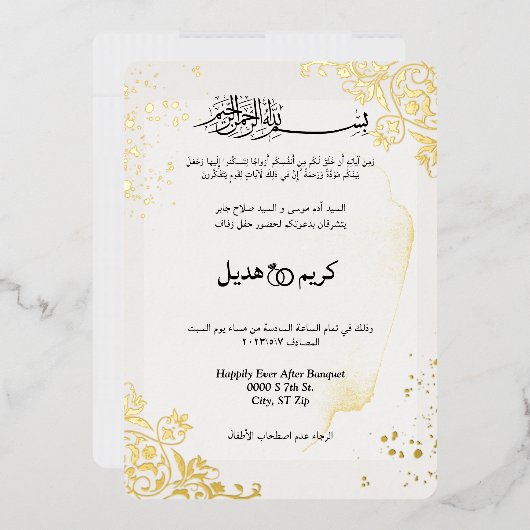 بسم الله الرحمن الرحيم
وَمِنْ آيَاتِهِ أَنْ خَلَقَ لَكُم مِّنْ أَنفُسِكُمْ أَزْوَاجًا لِّتَسْكُنُوا إِلَيْهَا وَجَعَلَ
بَيْنَكُم مَّوَدَّةً وَرَحْمَةً ۚ إِنَّ فِي ذَٰلِكَ لَآيَاتٍ لِّقَوْمٍ يَتَفَكَّرُونَ
السيد آدم موسى و السيد صلاح جابر
يتشرفان بدعوتكم لحضور حفل زفاف
كريم هديل
وذلك في تمام الساعة السادسة من مساء يوم السبت
المصادف ٢٠٢٣\٥\٧
Happily Ever After Banquet
0000 S 7th St.
City, ST Zip
الرجاء عدم اصطحاب الأطفال